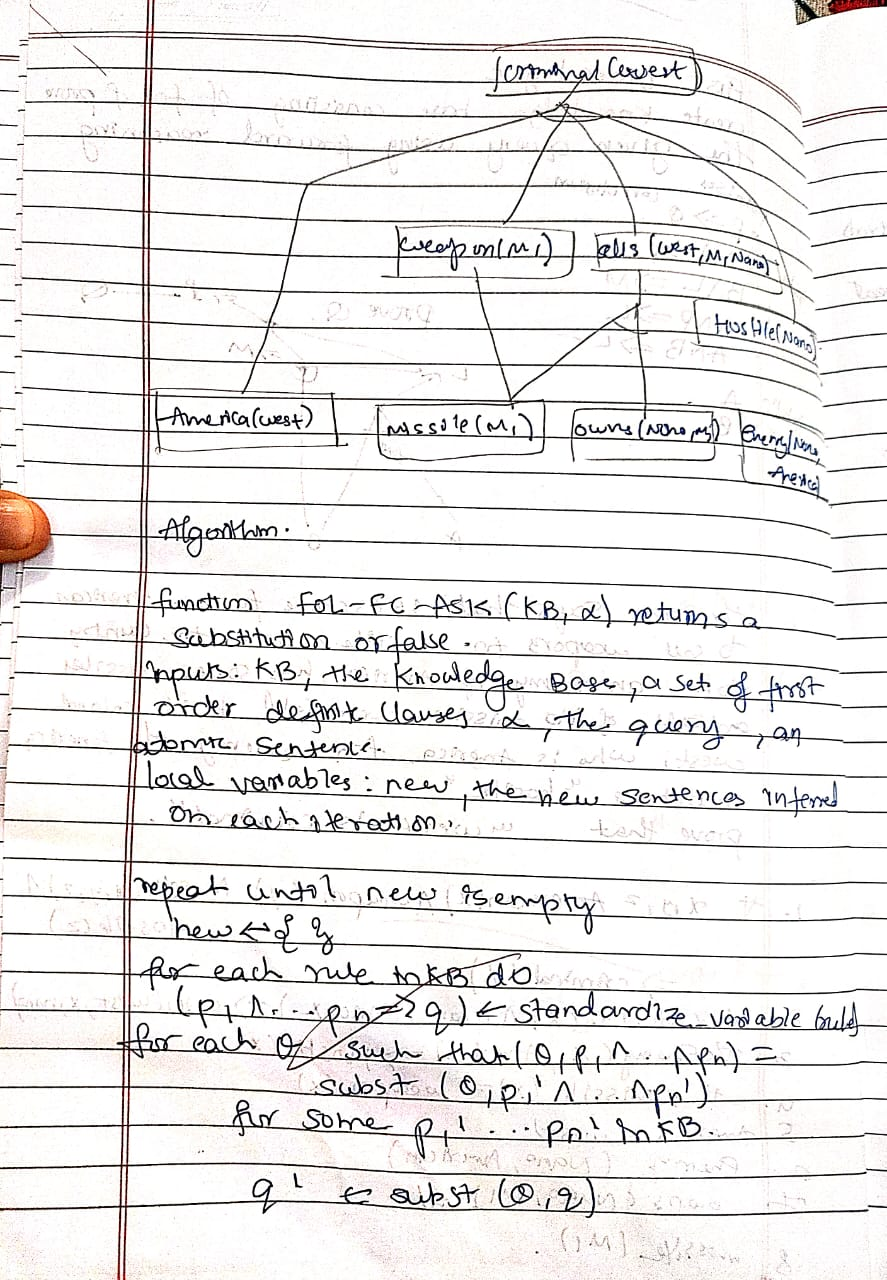 Criminal (west)
weapon(M1)
sells (west, M1, Nano)
Hostile(Nono)
America(west)
Missile(M1)
owns (Nono, M1)
Enemy(Nono,
America)
Algorithm.
function FOL-FC-ASK (KB, α) returns a
substitution or false.
inputs: KB, the Knowledge Base, a set of first
order definite clauses α, the query, an
atomic sentence.
local variables: new, the new sentences inferred
on each iteration.
repeat until new is empty
new ← { }
for each rule in KB do
(p1 ∧ ... pn => q) ← standardize_variable (rule)
for each θ such that (θ, p1 ∧ ... ∧ pn) =
subst (θ, p1' ∧ ... ∧ pn')
for some p1' ... pn' in KB.
q' ← subst (θ, q)